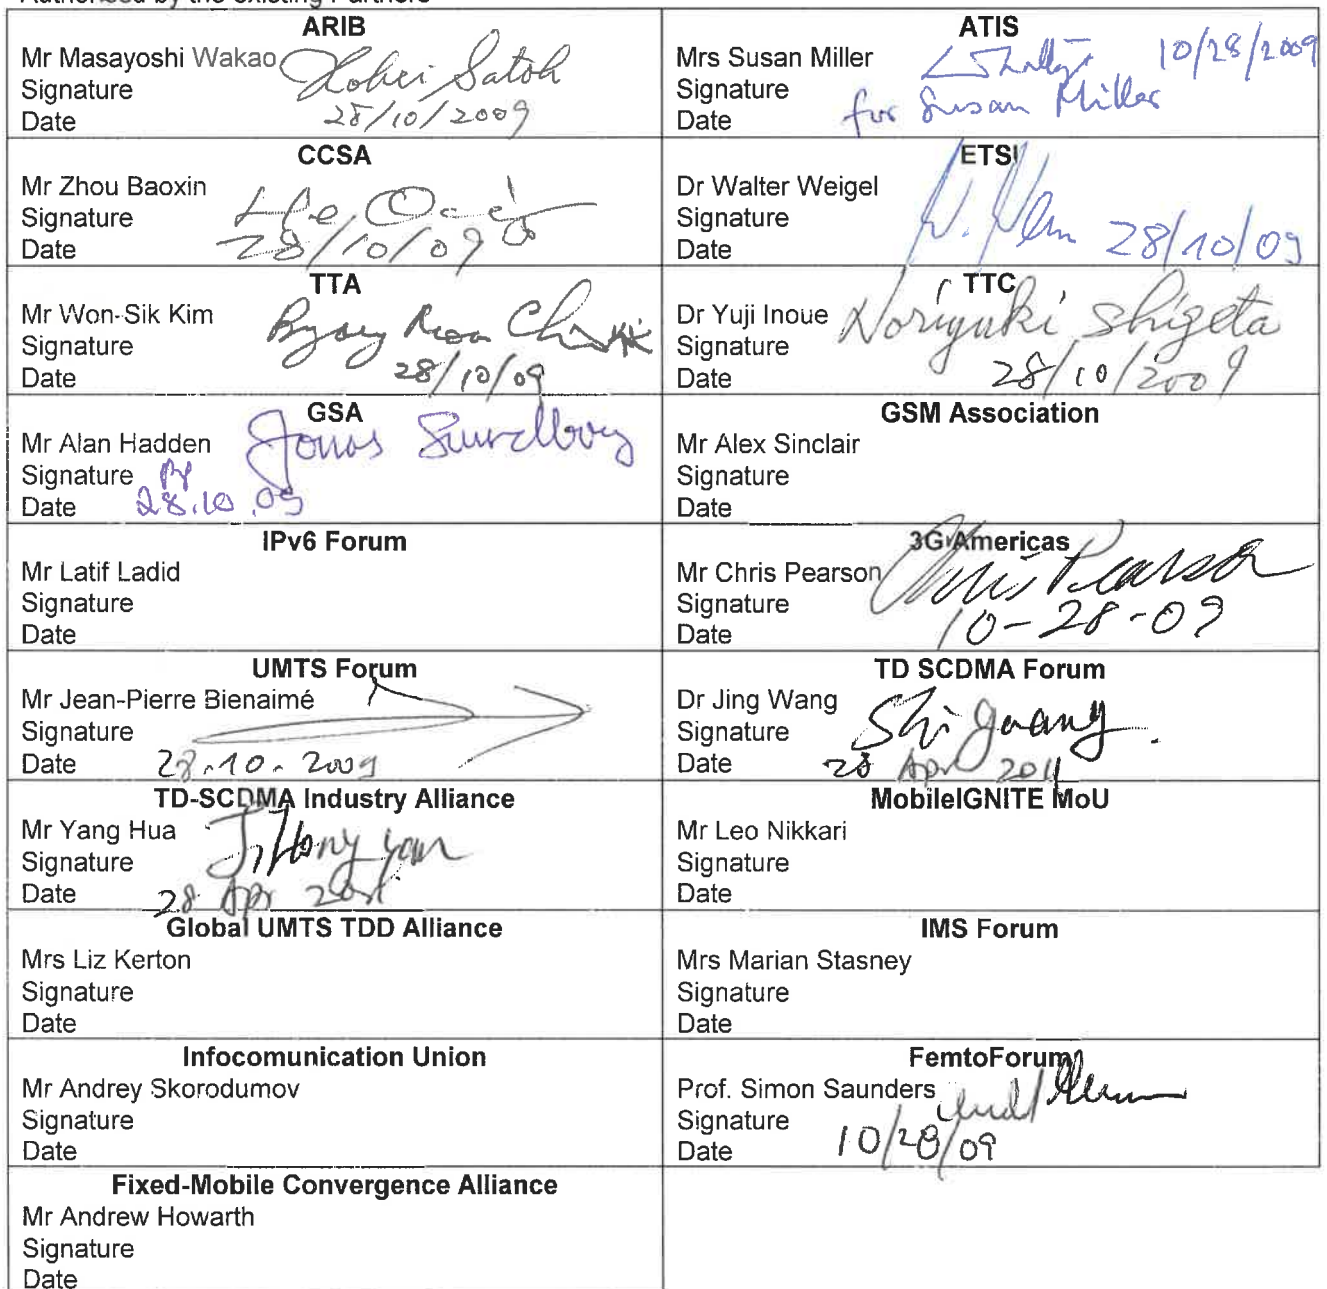 Authorised by the existing Partners
ARIB
Mr Masayoshi Wakao
Signature Kohei Satoh
Date 28/10/2009
ATIS
Mrs Susan Miller 10/28/2009
Signature
Date for Susan Miller
CCSA
Mr Zhou Baoxin
Signature
Date 28/10/09
ETSI
Dr Walter Weigel
Signature
Date 28/10/09
TTA
Mr Won-Sik Kim
Signature
Date 28/10/09
TTC
Dr Yuji Inoue Noriyuki Shigeta
Signature
Date 28/10/2009
GSA
Mr Alan Hadden Jonas Sundborg
Signature pp
Date 28.10.09
GSM Association
Mr Alex Sinclair
Signature
Date
IPv6 Forum
Mr Latif Ladid
Signature
Date
3G Americas
Mr Chris Pearson Chris Pearson
Signature
Date 10-28-09
UMTS Forum
Mr Jean-Pierre Bienaimé
Signature
Date 28.10.2009
TD SCDMA Forum
Dr Jing Wang
Signature
Date 28 Apr 2011
TD-SCDMA Industry Alliance
Mr Yang Hua
Signature
Date 28 Apr
MobileIGNITE MoU
Mr Leo Nikkari
Signature
Date
Global UMTS TDD Alliance
Mrs Liz Kerton
Signature
Date
IMS Forum
Mrs Marian Stasney
Signature
Date
Infocomunication Union
Mr Andrey Skorodumov
Signature
Date
FemtoForum
Prof. Simon Saunders
Signature
Date 10/28/09
Fixed-Mobile Convergence Alliance
Mr Andrew Howarth
Signature
Date